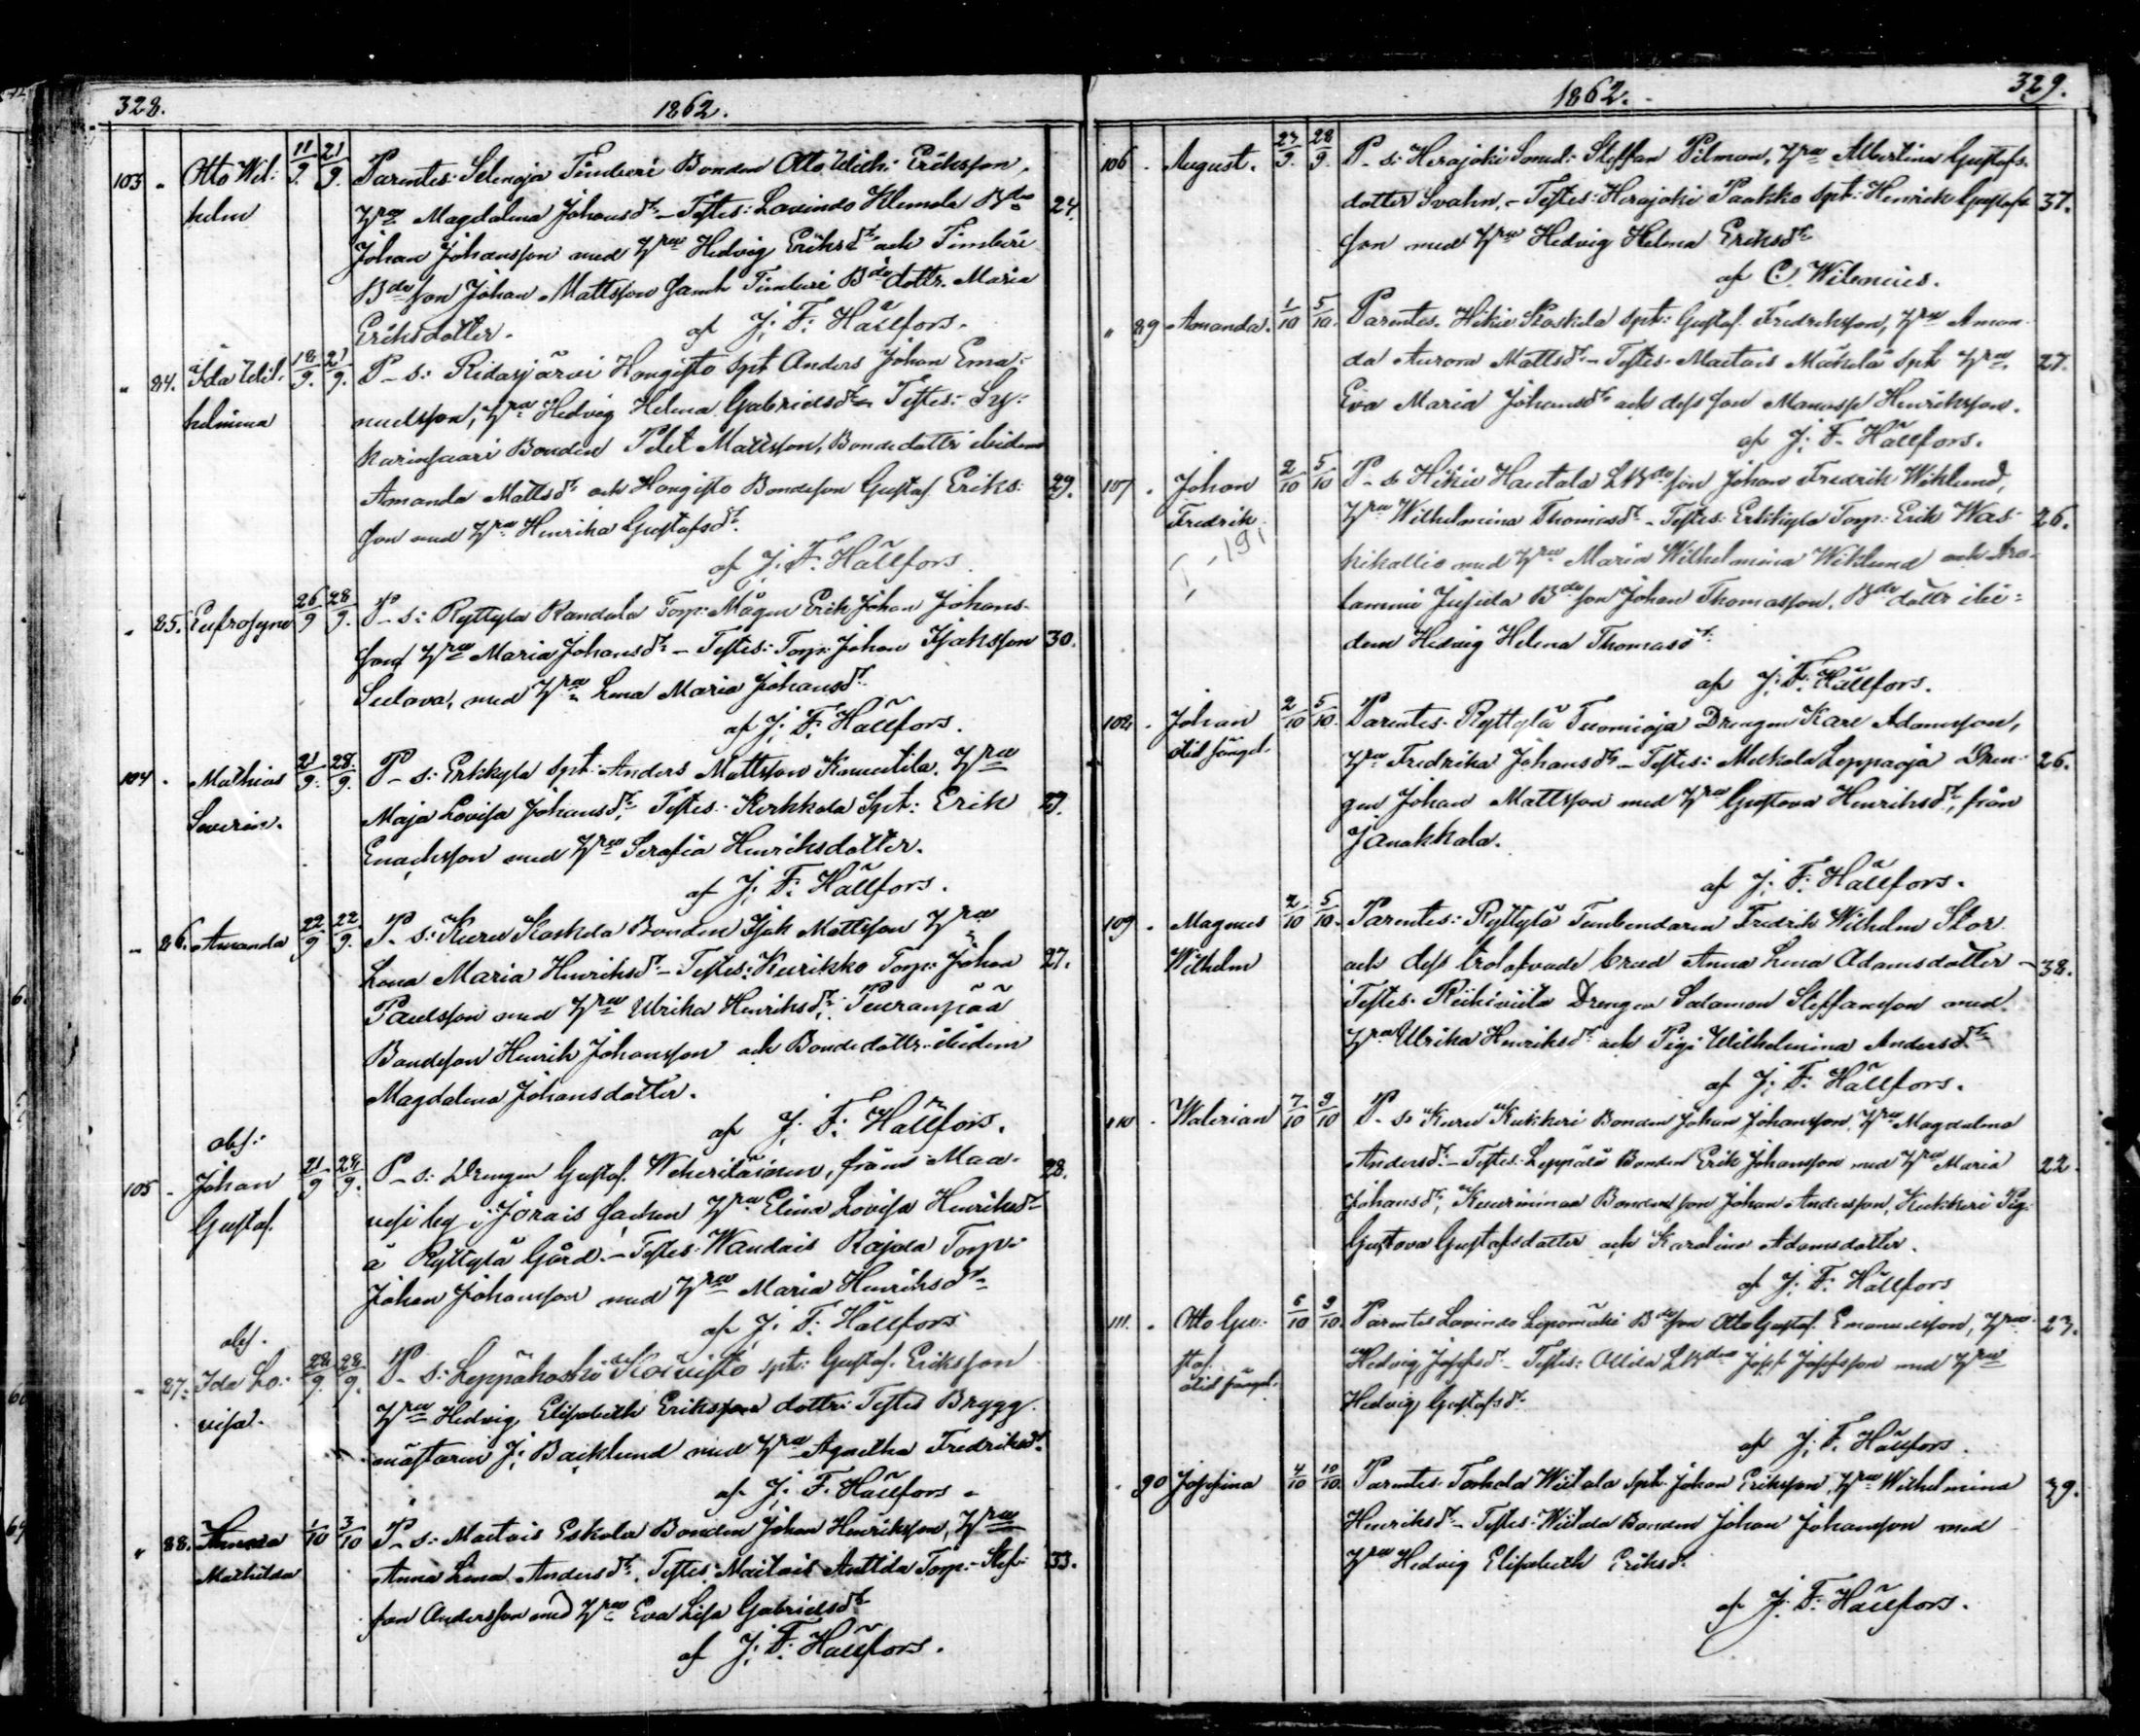 328.
1862.
103 " Otto Wil: 11/9. 21/9. Parentes: Selinoja Timberi Bonden Otto Wilh: Eriksson,
helm Hru Magdalena Johansdr – Testes: Lavindo Klemola Bde 24.
Johan Johansson med Hru Hedvig Eriksdr och Timberi
Bdeson Johan Mattsson samt Timberi Bdedottr. Maria
Eriksdotter. af J: F: Hällfors.
" 84. Ida Wil. 18/9. 21/9. P_s: Ridasjärvi Hongisto Spt Anders Johan Ema-
helmina nuelsson, Hru Hedvig Helena Gabrielsdr Testes: Sy-
karinsaari Bonden Matsson, Bondedottr ibidem
Amanda Mattsdr och Hongisto Bondeson Gustaf Eriks: 29.
son med Hru Henrika Gustafsdr.
af J: F. Hällfors.
" 85. Eufrosyne 26/9 28/9. P_s: Ryttylä Randala Torp: Mågen Erik Johan Johans-
son Hru Maria Johansdr – Testes: Torp: Johan Isaksson 30.
med Hru Lena Maria Johansdr.
af J: F: Hällfors.
104 - Mathias 21/9. 28/9. P_s: Erkkylä Spt: Anders Mattsson Hru
Severin. Maja Lovisa Johansdr, Testes: Kerkkola Spt: Erik 27.
Enochsson med Hru Serafia Henriksdotter.
af J: F: Hällfors.
" 86. Amanda 22/9 22/9. P_s: Kuru Koskela Bonden Isak Mattsson Hru
Lena Maria Henriksdr – Testes: Kurikko Torp: Johan 27.
Paulsson med Hru Ulrika Henriksdr, Peuranpää
Bondeson Henrik Johansson och Bondedottr. ibidem
Magdalena Johansdotter.
af J: F: Hällfors.
105 - Johan 21/9 28/9. P_s: Drengen Gustaf från Maa- 28.
Gustaf. vesi by i Jorois Socken Hru Elina Lovisa Henriksdr
å Ryttylä Gård. – Testes: Wandais Rajala Torp:
Johan Johansson med Hru Maria Henriksdr
af J: F: Hällfors
" 87. Ida Lo: 28/9. 28/9. P_s: Leppäkoski Koivisto spt: Gustaf Eriksson
visa. Hru Hedvig Elisabeth Eriks dotter Testes Brygg-
mästaren J: Backlund med Hru Agatha Fredriksdr
af J: F: Hällfors.
" 88. Amanda 1/10 3/10 P_s: Maitois Eskola Bonden Johan Henriksson, Hru
Mathilda Anna Lena Andersdr, Testes: Maitois Anttila Torp: Stef- 33.
fan Andersson med Hru Eva Lisa Gabrielsdr
af J: F. Hällfors.
1862.
329.
106 . August. 27/9. 28/9. P_s: Herajoki Steffan Pilman, Hru Albertina Gustafs-
dotter Svahn. – Testes: Herajoki Paakko Spt: Henrik Gustafs- 37.
son med Hru Hedvig Helena Eriksdr
af C. Wilenius.
" 89 Amanda. 1/10 5/10. Parentes. Hikiä Koskela Spt: Gustaf Fredriksson, Hru Aman-
da Aurora Mattsdr – Testes. Maitois Mäkelä Spt Hru 27.
Eva Maria Johansdr och dess son Manasse Henriksson.
af J: F. Hällfors.
107 . Johan 2/10 5/10 P_s Hikiä Hautala LBdeson Johan Fredrik Wiklund,
Fredrik Hru Wilhelmina Thomasdr – Testes: Erkkylä Torp: Erik Was- 26.
kikallio med Hru Maria Wilhelmina Wiklund och Aro-
lammi Jussila Bdeson Johan Thomasson, Bdedottr ibi-
dem Hedvig Helena Thomasdr
af J: F: Hällfors.
108 . Johan 2/10 5/10. Parentes: Ryttylä Tuomioja Drengen Karl Adamsson,
Hru Fredrika Johansdr – Testes: Leppäoja Dren- 26.
gen Johan Mattsson med Hru Gustava Henriksdr, från
Janakkala.
af J: F: Hällfors.
109 . Magnus 2/10 5/10. Parentes: Ryttylä Fredrik Wilhelm Stor
Wilhelm och dess trolofvade brud Anna Lena Adamsdotter – 38.
Testes: Drengen Salamon Steffansson med
Hru Ulrika Henriksdr och Pig: Wilhelmina Andersdr
af J: F: Hällfors.
110 . Walerian 7/10 9/10 P_s Kuru Kukkeri Bonden Johan Johansson, Hru Magdalena
Andersdr – Testes: Leppälä Bonden Erik Johansson med Hru Maria 22.
Johansdr, Bondens son Johan Andersson, Kukkeri Pig:
Gustava Gustafsdotter och Karolina Adamsdotter.
af J: F: Hällfors
111. . Otto Gu- 6/10 9/10. Parentes Lavindo Bdeson Otto Gustaf Emanuelsson, Hru 27.
staf. Hedvig Josefsdr – Testes: Ollila LBden Josef Josefsson med Hru
Hedvig Gustafsdr
af J: F. Hällfors.
" 90 Josefina 4/10 10/10. Parentes. Torhola Wiitala Spt: Johan Eriksson, Hru Wilhelmina 39.
Henriksdr – Testes: Wiitala Bonden Johan Johansson med
Hru Hedvig Elisabeth Eriksdr.
af J: F: Hällfors.